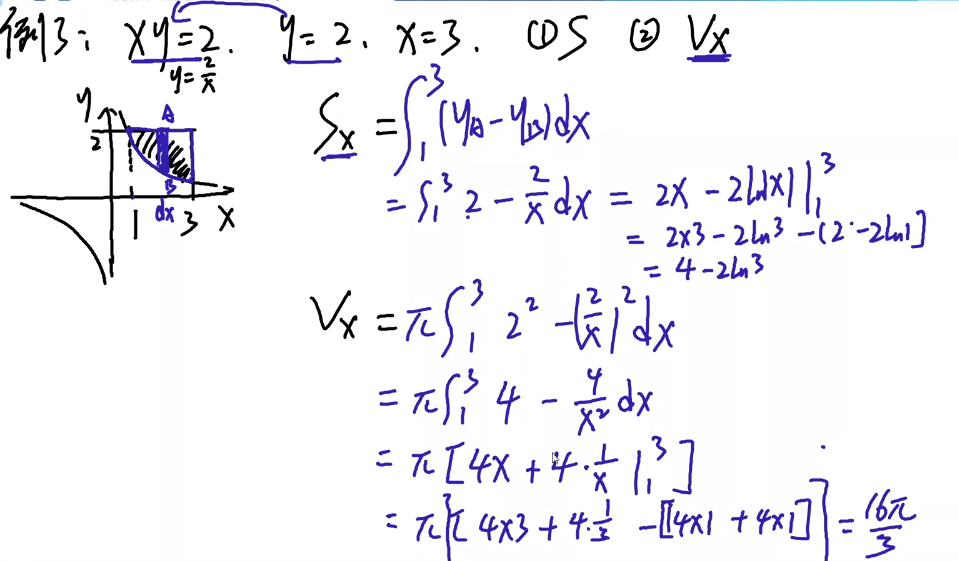 例3: xy=2. y=2. x=3. ① S ② Vx
y=2/x
y
A
2
B
1 dx 3 x
Sx = ∫₁³ (yA - yB)dx
= ∫₁³ 2 - 2/x dx = 2x - 2ln|x| |₁³
= 2×3 - 2ln3 - (2 - 2ln1]
= 4 - 2ln3
Vx = π∫₁³ 2² - (2/x)² dx
= π∫₁³ 4 - 4/x² dx
= π[4x + 4·1/x |₁³]
= π{[4×3 + 4·1/3 - [4×1 + 4×1]} = 16π/3